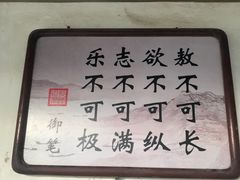 敖不可长
欲不可纵
志不可满
乐不可极
御笔